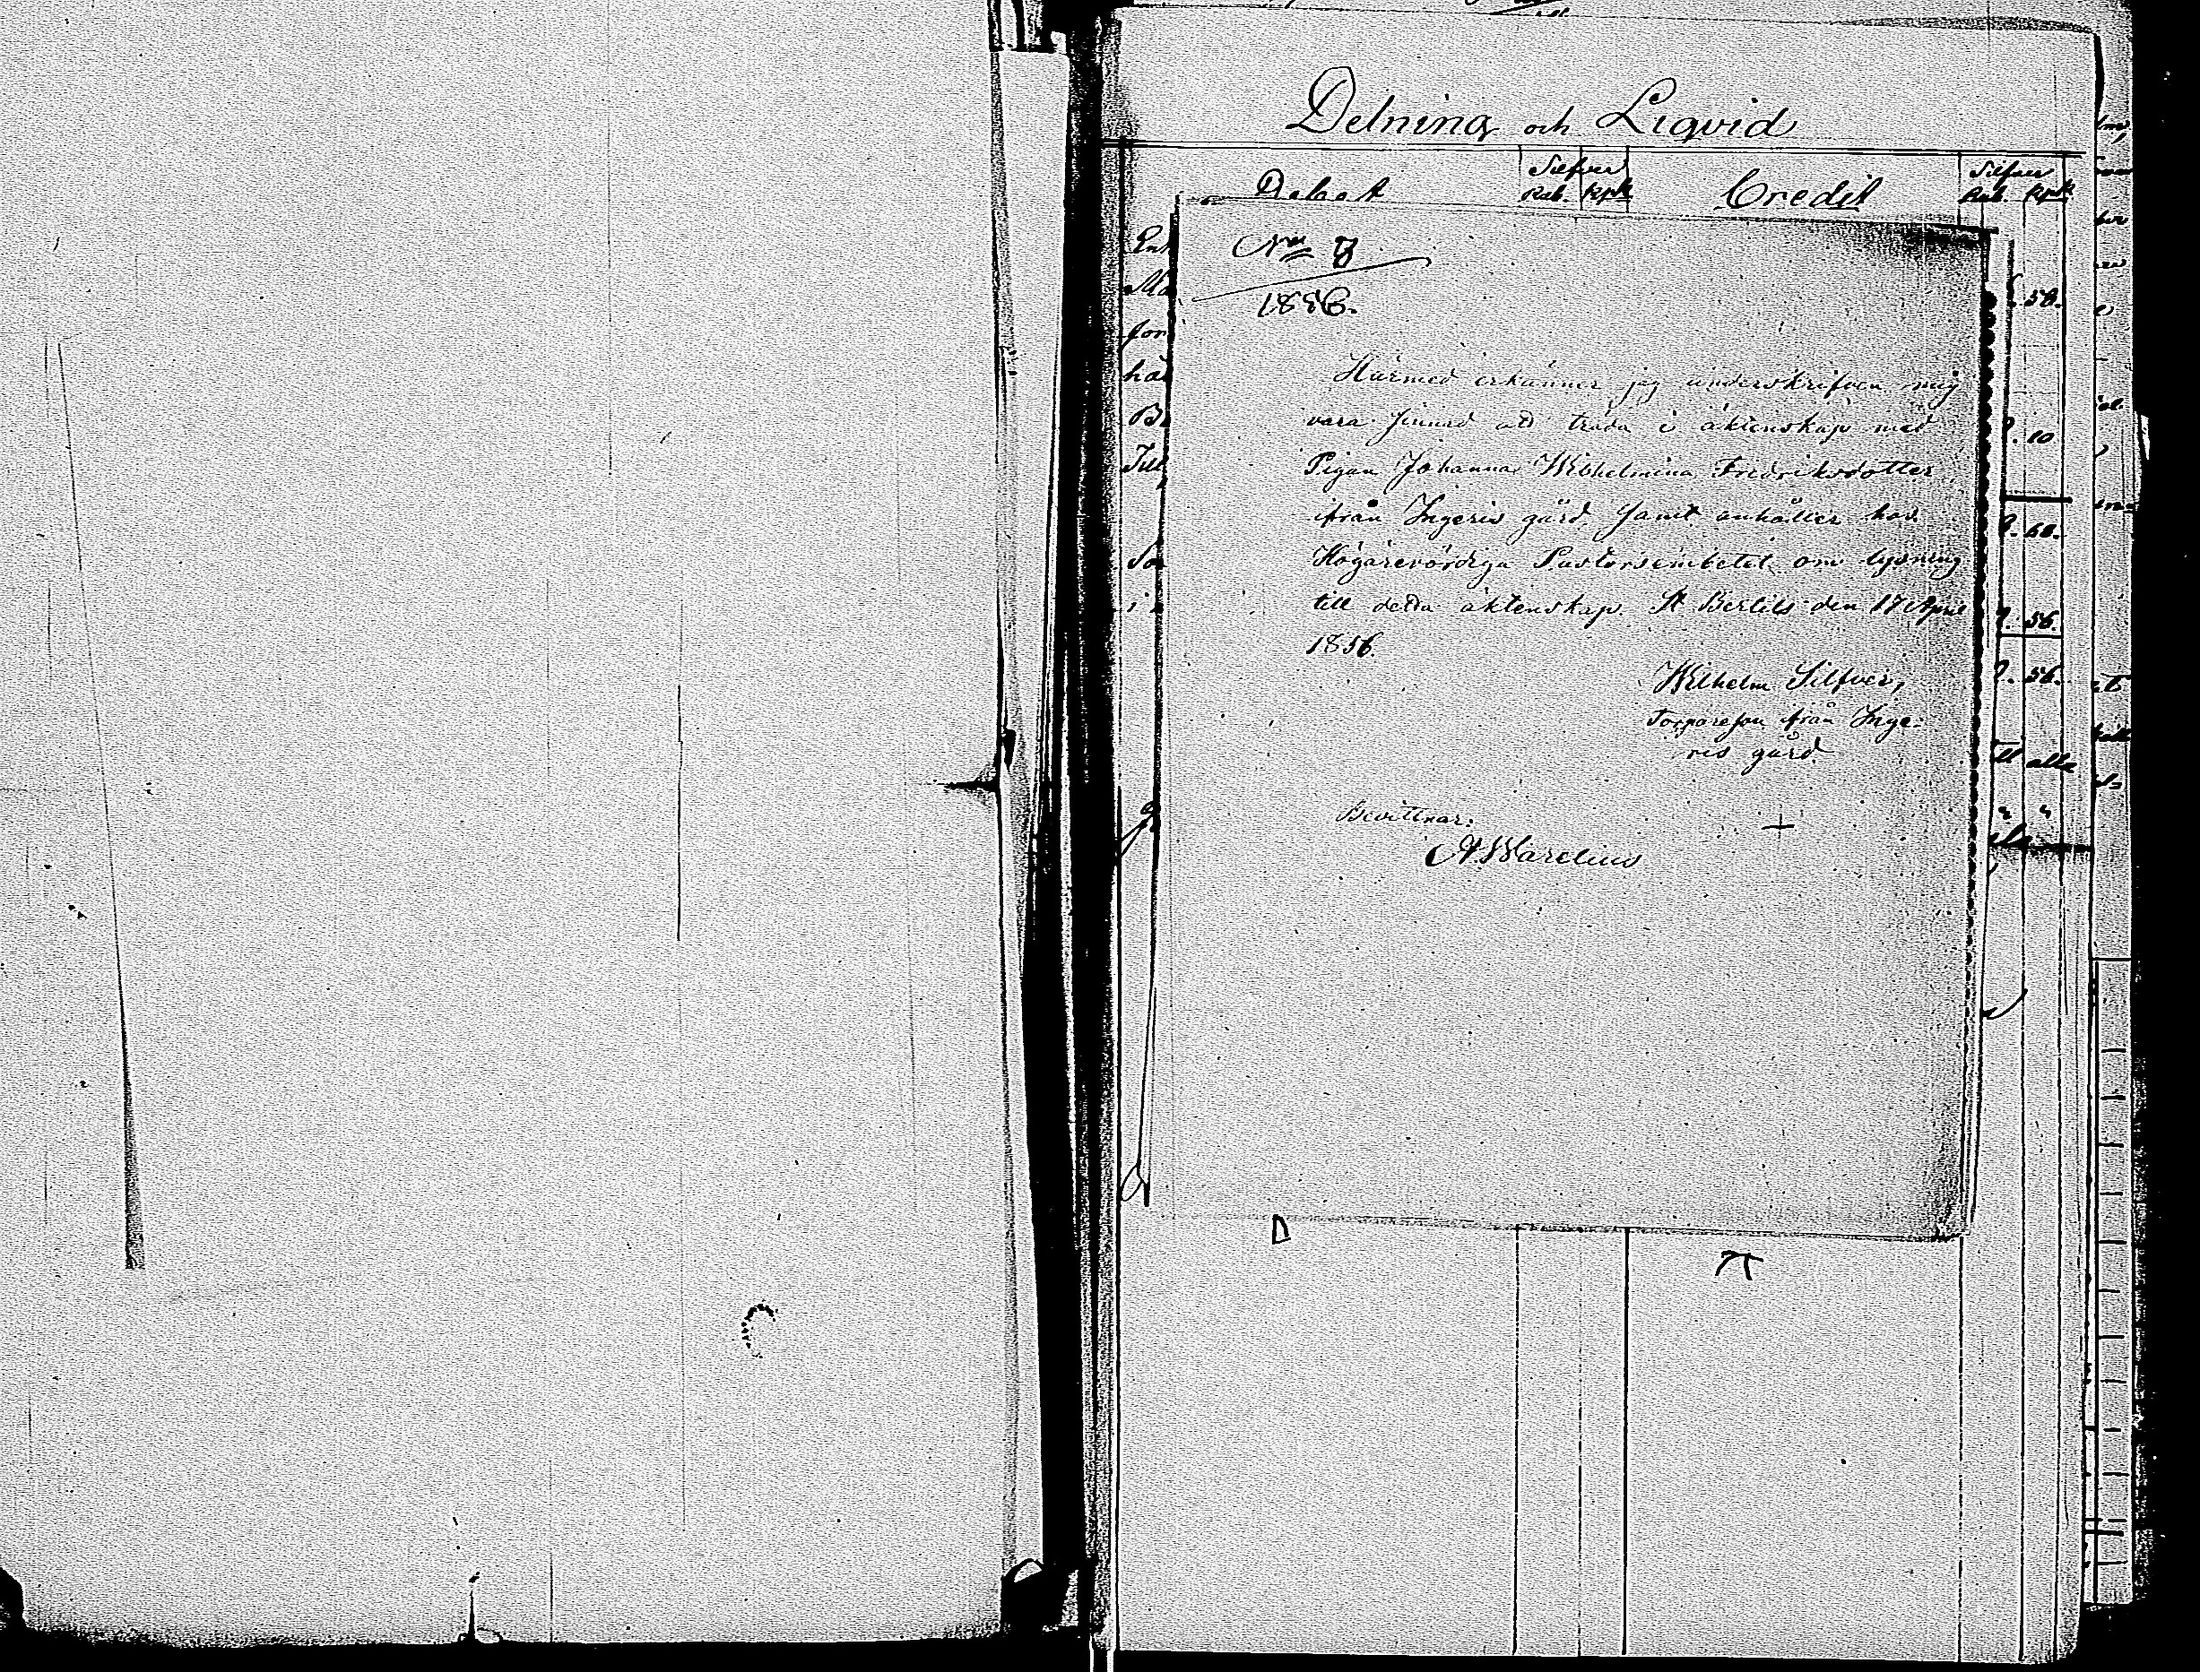 Delning och Liqvid
Debet Silfver Credit Silfver
Rub. Kpk Rub. Kpk
No 8
1856.
Härmed erkänner jag underskrifven mig
vara sinnad att träda i äktenskap med
Pigan Johanna Wilhelmina Fredriksdotter
ifrån Ingeris gård, samt anhåller hos
Högärevördiga Pastorsembetet om lysning
till detta äktenskap. St Bertils den 17 April
1856.
Wilhelm Silfver,
Torpareson ifrån Inge-
ris gård.
Bevittnar:
A. Warelius
Ma
för
hå
Till
50.
10
60.
56.
56.
alla